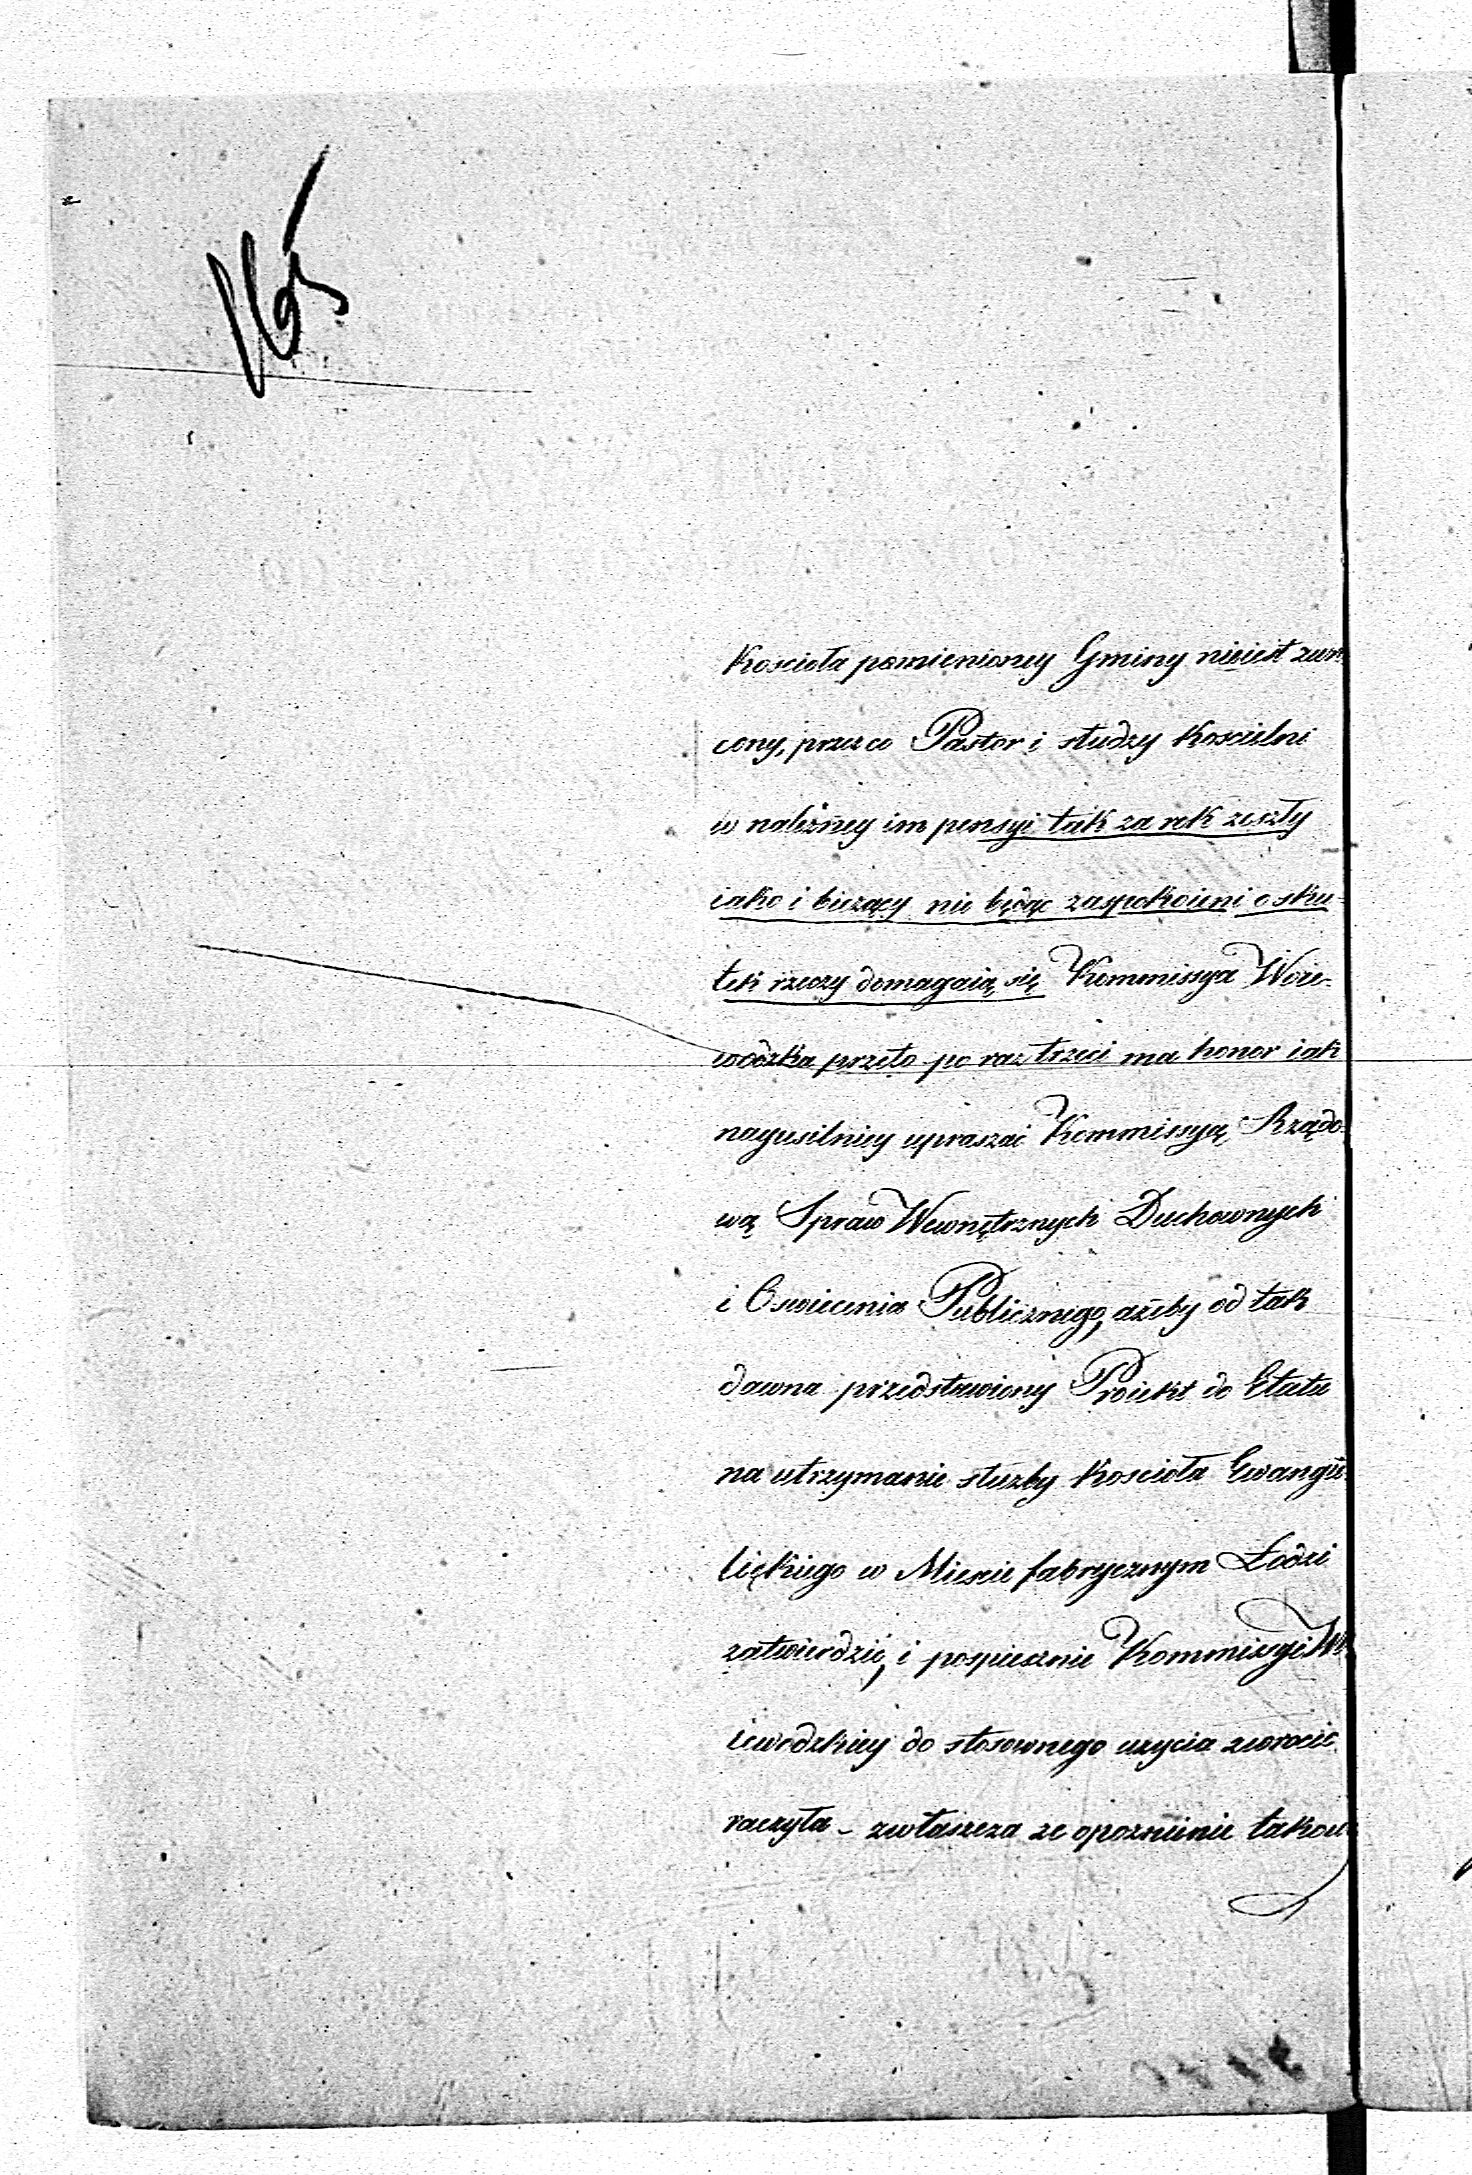 165
Kościoła pomienioney Gminy nieiest zwró
cony, przez co Pastor i słudzy Kościelni
w należney im pensyi tak za rok zeszły
iako i bieżący nie będąc zaspokoieni o sku-
tek rzeczy domagaią się Kommissya Woie-
wódzka przeto po raz trzeci ma honor iak
nayusilniey upraszać Kommissyą Rządo-
wą Spraw Wewnętrznych Duchownych
i Oswiecenia Publicznego, ażeby od tak
dawna przedstawiony Proiekt do Etatu
na utrzymanie służby Kościoła Ewangie-
lickiego w Mieście fabrycznym Łodzi
zatwierdzić, i pospiesznie Kommissyi Wo
iewodzkiey do stosownego użycia zwrocić
raczyła – zwłaszcza że opoznienie takow